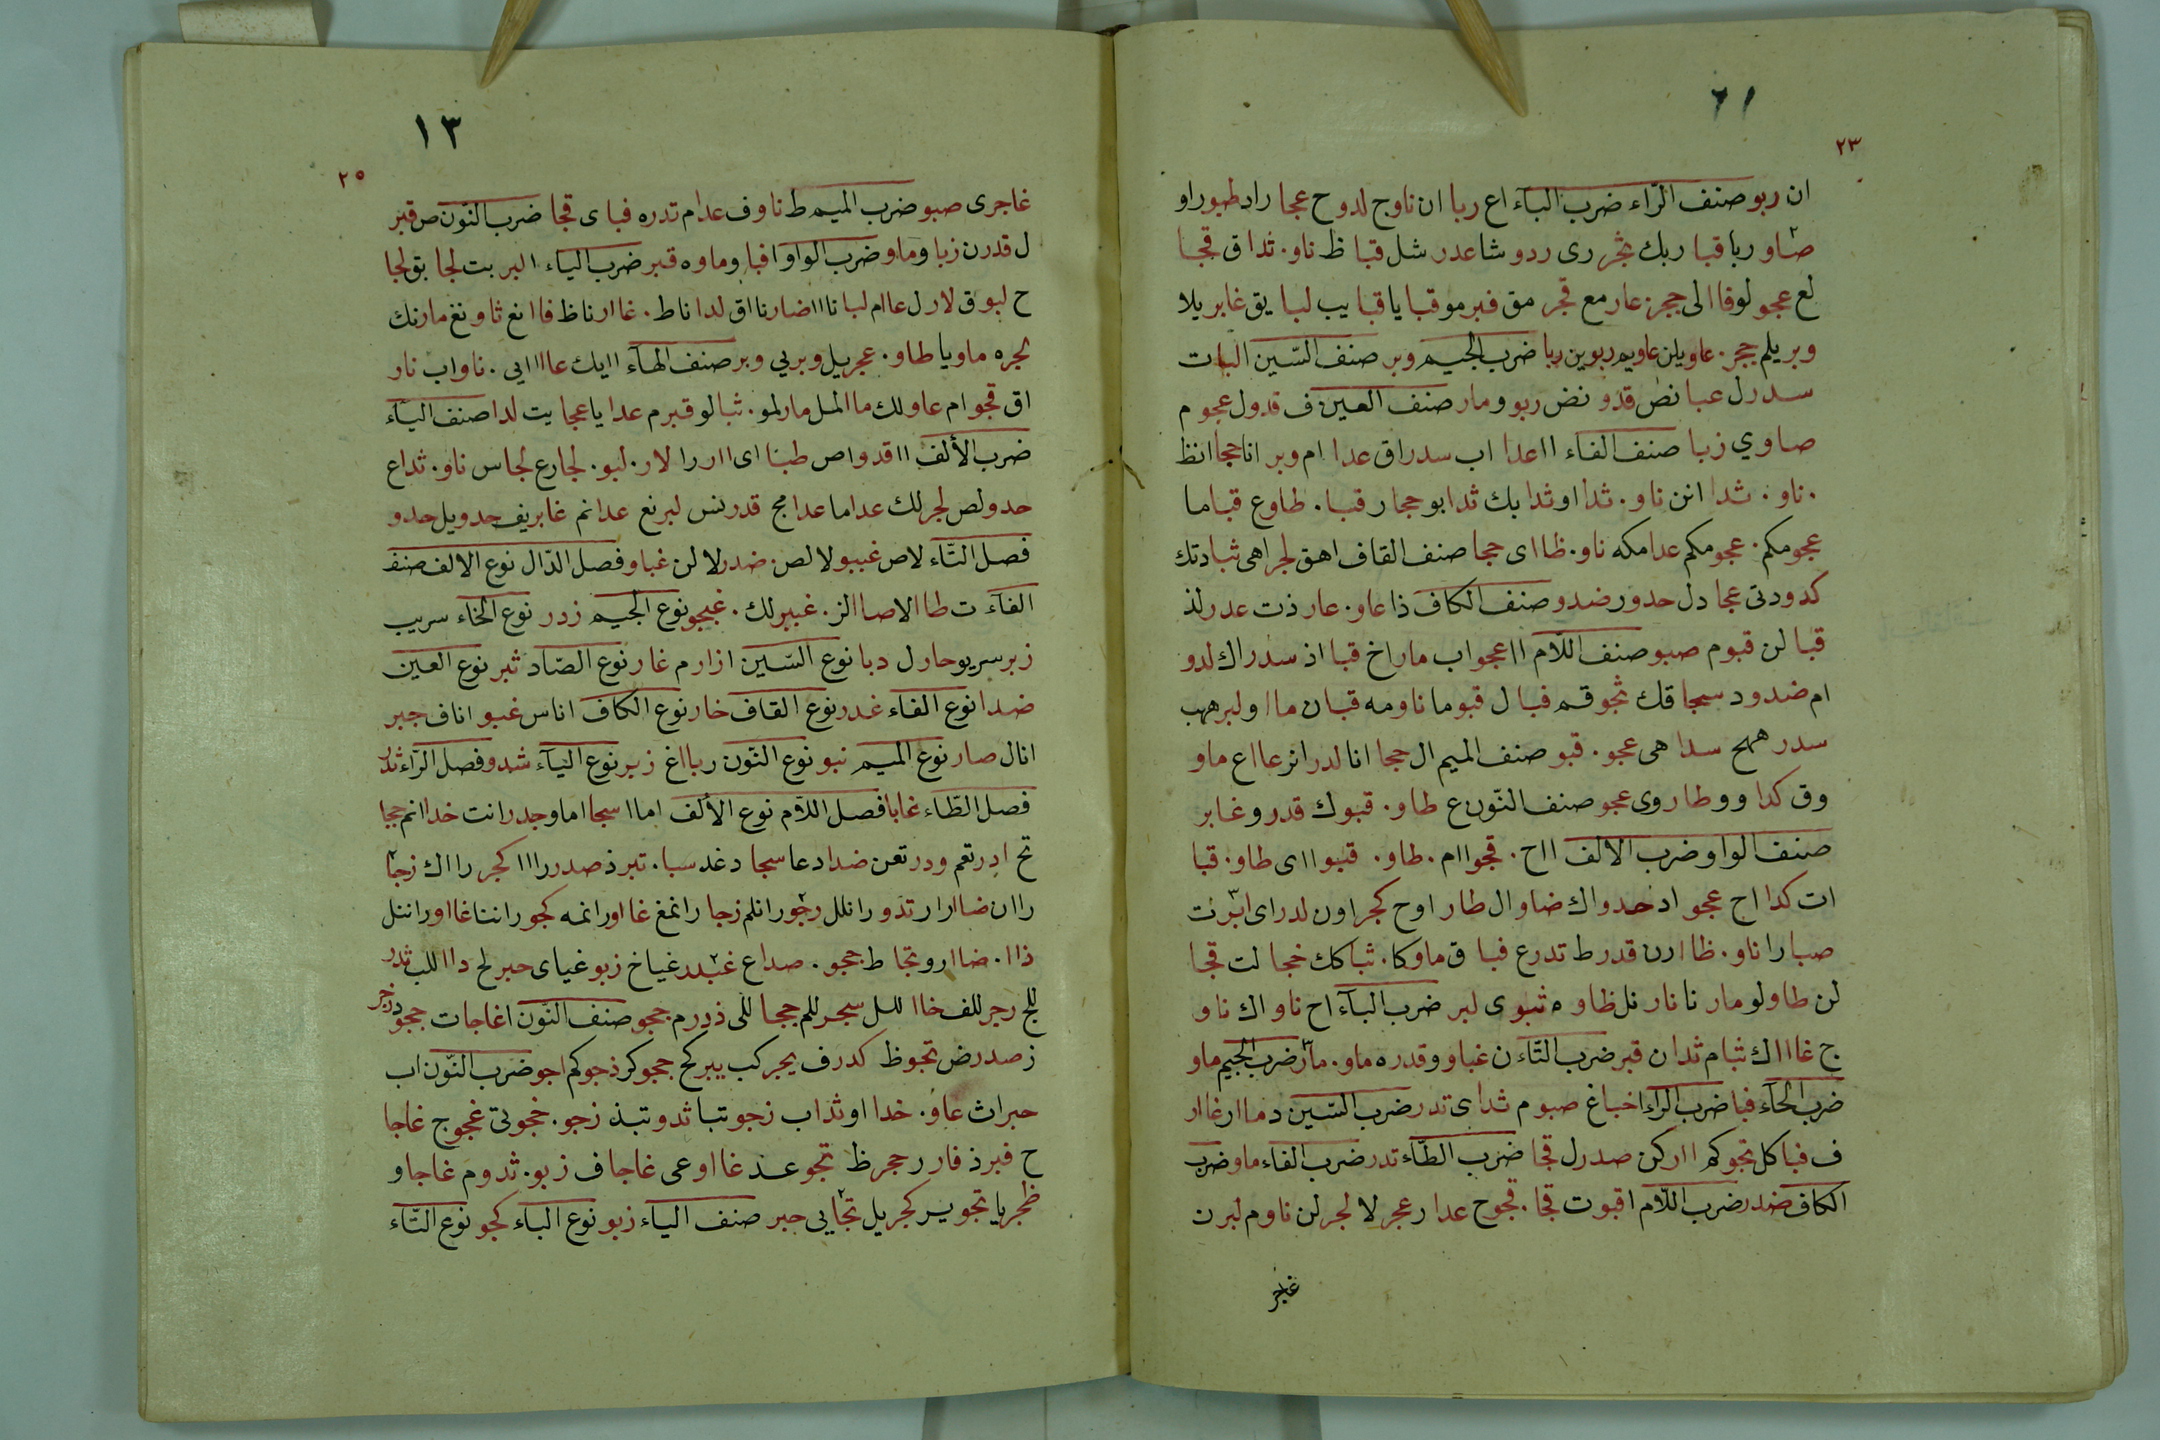 ٦١
٢٣
ان ربو صنف الرّاء ضرب البآء اع ربا ان ناوج لدوح عجا راد طبوراو
صاو ربا قبا ربك ثجر رى ردو شا عدر شل قبا ظ ناو. ثدا ق قجبا
لع عجو لوفا الى ججر زعار مع قجر مق فبر مو قبا يا قبا يب لبا يق غابر يلا
وبر يلم ججر. عاو يلن عاو يم ربو ين ربا ضرب الجيم وبر صنف السّين البات
سدرل عبا نص قدو نض ربو ومار صنف العين ف قدول عجوم
صاوي زبا صنف الفاء ااعدا اب سدراق عدا ام وبر انا ججا انظ
. ناو. ثدا انن ناو. ثدا او ثدا بك ثدا بو ججا ر قبا. طاوع قباما
عجومكم. عجومكم عدامكه ناو. ظا اى ججا صنف القاف اهق لجراهى ثبادتك
كدودتى عجا دل حدور ضدو صنف الكاف ذا عاو. عار ذت عدر لذ
قبا لن قبوم صبو صنف اللاّم ااعجو اب ماراخ قبا اذ سدراك لدو
ام ضدود سجا قك ثجو قم فبا ل قبو ما ناو مه قبا ن ما ا ولبر همب
سدر همح سدا هى عجو. قبو صنف الميم ال ججا انا لدرانر عااع ماو
وق كدا وو طا روى عجو صنف النّون ع طاو. قبوك قدر وغابر
صنف الواو ضرب الالف ااح. قجواام. طاو. قبو ااى طاو. قبا
ات كدا اح عجو اد حدو اك ضاو ال طار اوح كجر اون لدراى ابرنت
صبا را ناو. ظا ارن قدر ط تدرع فبا ق ماوكا. ثبا كك خجا لت قجا
لن طاولو مار نا نار نل ظاو ه ثبوى لبر ضرب البآء اح ناو اك ناو
ج غا ااك ثبام ثدان قبر ضرب التّاء ن غباو وقدره ماو. مار ضرب الجيم ماو
ضرب الحآء فبا ضرب الرّاء اخباغ صبوم ثداى تدر ضرب السّين دما ارغاار
ف فبا كل تجوكم اا ركن صدرل قجا ضرب الطّاء تدر ضرب الفاء ماو ضرب
الكاف ضدر ضرب اللاّم اقبوت قجا. قجوح عدا رعجر لا لجر لن ناوم لبرن
غاجر
١٣
٢٥
غاجرى صبو ضرب الميم ط ناوف عدام تدره فباى قجا ضرب النّون ص قبر
ل قدرن زبا وماو ضرب الواو افبا وماوه قبر ضرب الياء البر بت لجا بق لجا
ح لبوق لارل عاام لبا نا ااضارنا اق لدا ناط. غاار ناظ فاانغ ثاونغ مارنك
لجره ماويا طاو. عجر يل وبر يي وبر صنف الهآء اايك عااايى. ناواب نار
اق قجوام عاولك ما المل مارلمو. ثبالو قبرم عدا يا عجا يت لدا صنف اليآء
ضرب الألف ااقدواص طبنا اى اار را لار. لبو. لجارع لجاس ناو. ثداع
حدولص لجر لك عداما عدامج قدر نس لبر نغ عدانم غابريف حدويل حدو
فصل التّاء لاص غببو لا لص. ضدر لا لن غباو فصل الدّال نوع الالف صنف
الفآء ت طاالاصاالز. غببرلك. غبجو نوع الجيم زدر نوع الخاء سريب
زبر سر يو حارل دبا نوع السّين ازارم غار نوع الصّاد ثبر نوع العين
ضدا نوع الفاء غدر نوع القاف خار نوع الكاف اناس غبو اناف جبر
انال صار نوع الميم نبو نوع النّون ربااغ زبر نوع اليآء شدو فصل الرّاء ثدر
فصل الطّاء غابا فصل اللاّم نوع الألف اماا سجا اماو جدر انت خدا انم ججا
تح ادر تعم ودر تعن ضدادعا سجا دغد سبا. تبرذ صدر رااا كجر رااك زجا
راان ضاارار تدو رانلل رجو رانلم زجا رانمغ غااو رانمه كجو راننا غااو راننل
ذاا. ضاارو تجا ط ججو. صداع غبدر غياخ زبو غياى حبر لح داا للب تدر
للج رجر للف خاا للل سجر للم ججا للى ذدرم ججو صنف النّون اغاجات ججو دزجر
ز صدرض تجوظ كدرف يجر كب يبر كح ججو كر ذجو كم اجو ضرب النّون اب
حبراث عاو. خدا او ثداب زجو تبا ثدو تبذ زجو. خجوتى غجوج غاجا
ح فبرذ فار رججرظ تجو عذ غااوعى غاجا ف زبو. ثدوم غاجا و
ظجر يا تجو يبر كجر يل تجا يى حبر صنف الياء زبو نوع البآء كجو نوع التّاء